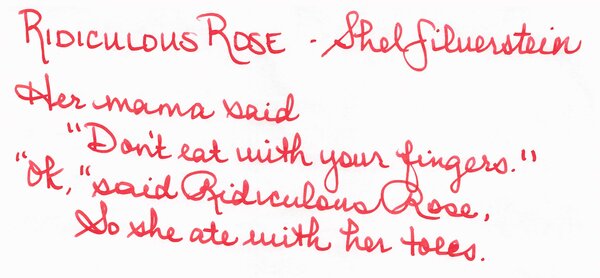 RIDICULOUS ROSE - Shel Silverstein
Her mama said
"Don't eat with your fingers."
"Ok," said Ridiculous Rose,
So she ate with her toes.